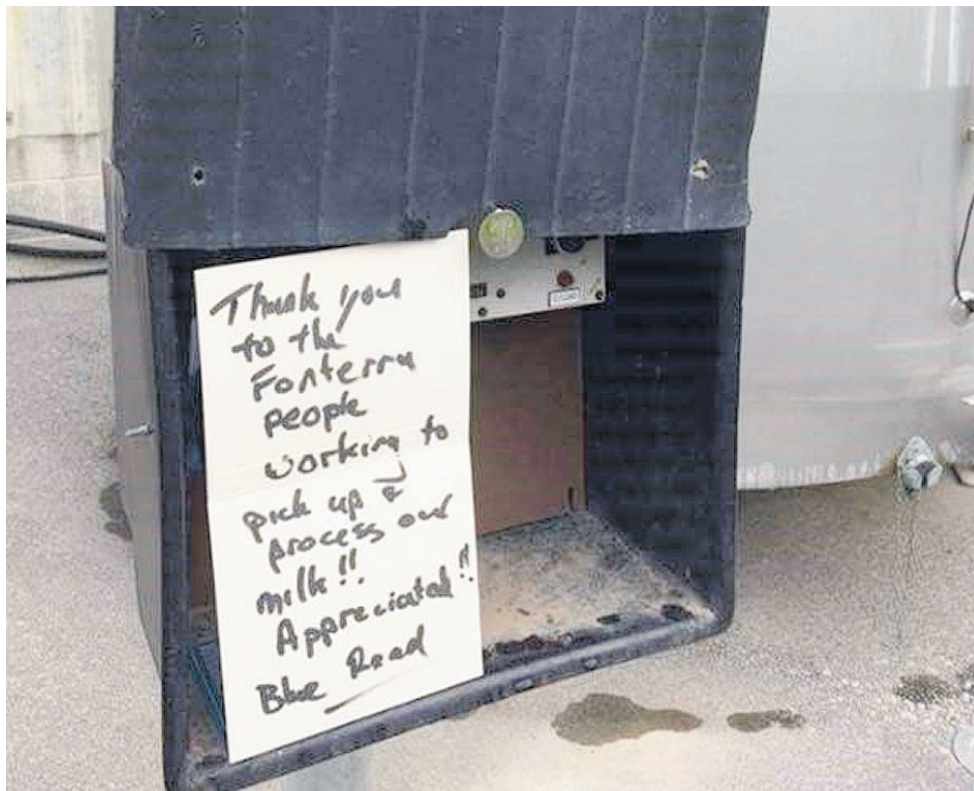 Thank you
to the
Fonterra
people
working to
pick up &
process our
milk!!
Appreciated!!
Blue Read